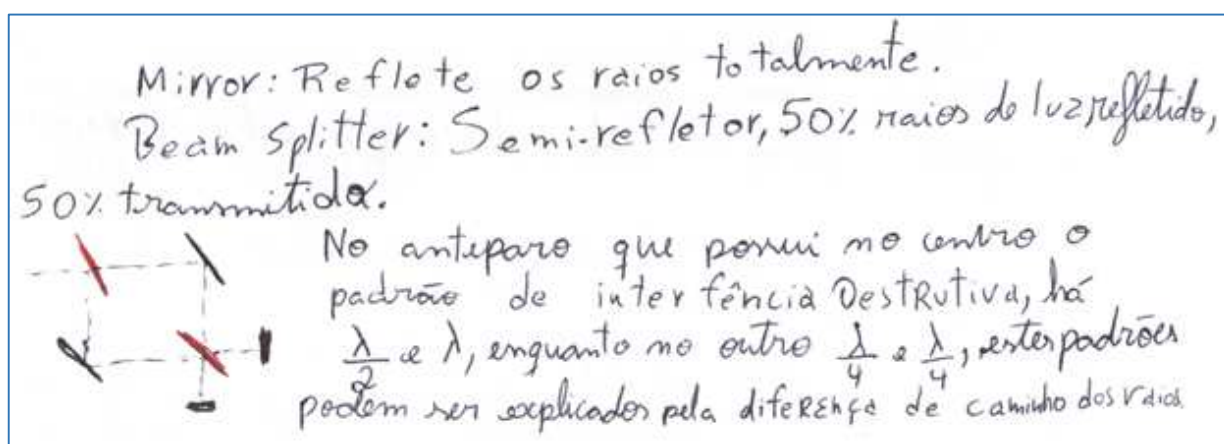 Mirror: Reflete os raios totalmente.
Beam splitter: Semi-refletor, 50% raios de luz refletido,
50% transmitida.
No anteparo que possui no centro o
padrão de interfência DESTRUTIVA, há
λ/2 e λ, enquanto no outro λ/4 e λ/4, estes padrões
podem ser explicados pela diferença de caminho dos raios.